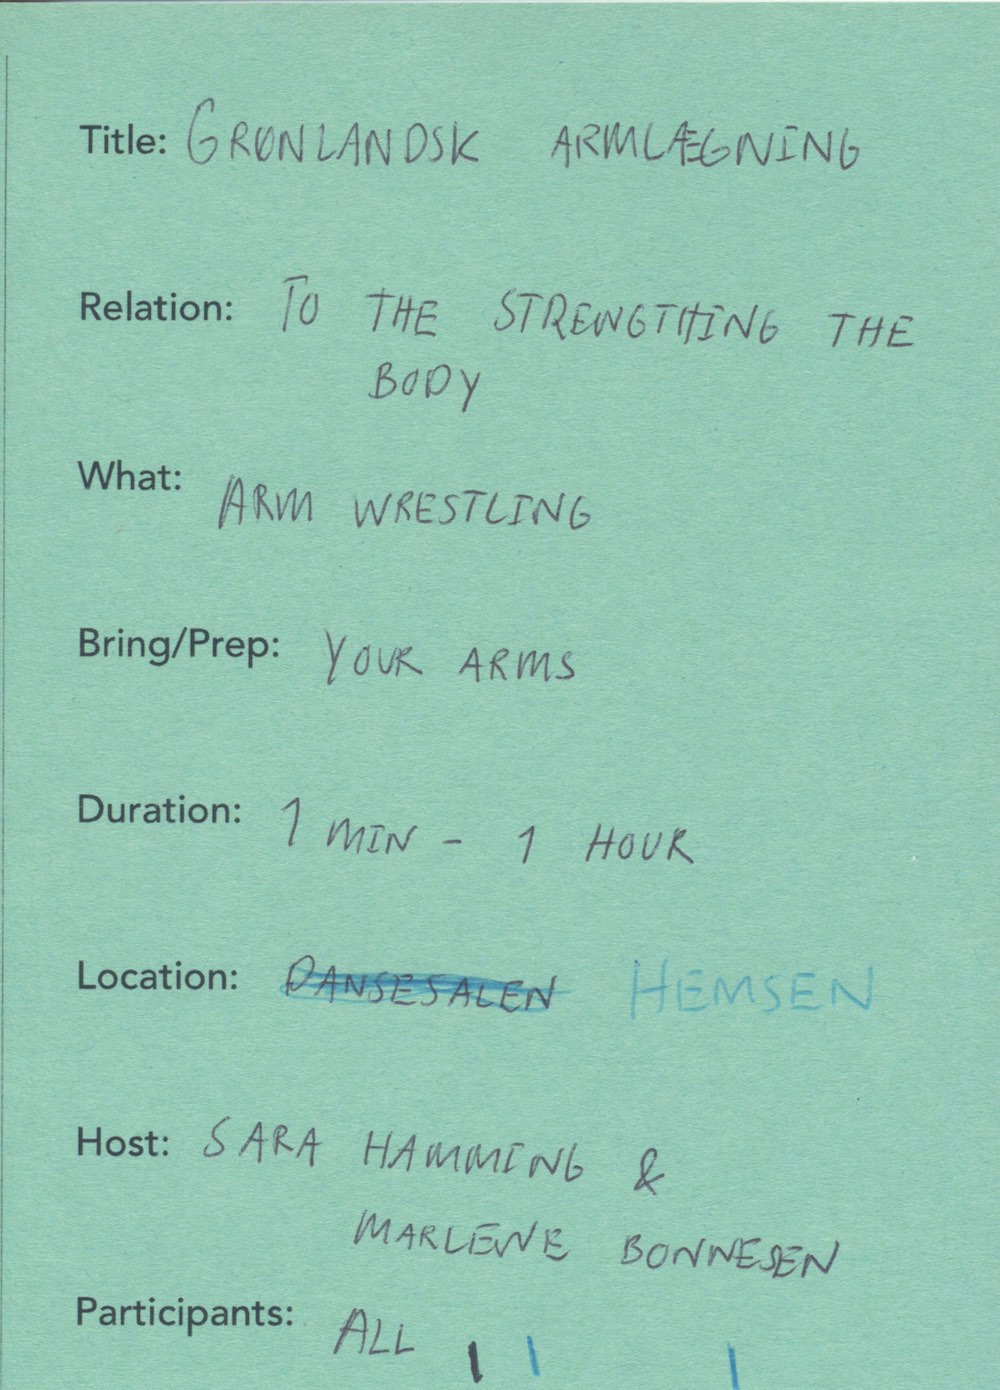 Title: GRØNLANDSK ARMLÆGNING
Relation: TO THE STRENGTHING THE
BODY
What: ARM WRESTLING
Bring/Prep: YOUR ARMS
Duration: 1 MIN - 1 HOUR
Location: DANSESALEN HEMSEN
Host: SARA HAMMING &
MARLENE BONNESEN
Participants: ALL